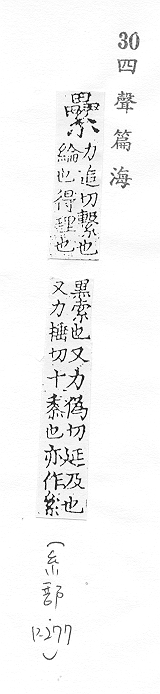 30 四聲篇海
纍
力追切繫也
綸也得理也
黒索也又力偽切延及也
又力捶切十黍也亦作絫
(糸部
12.277)